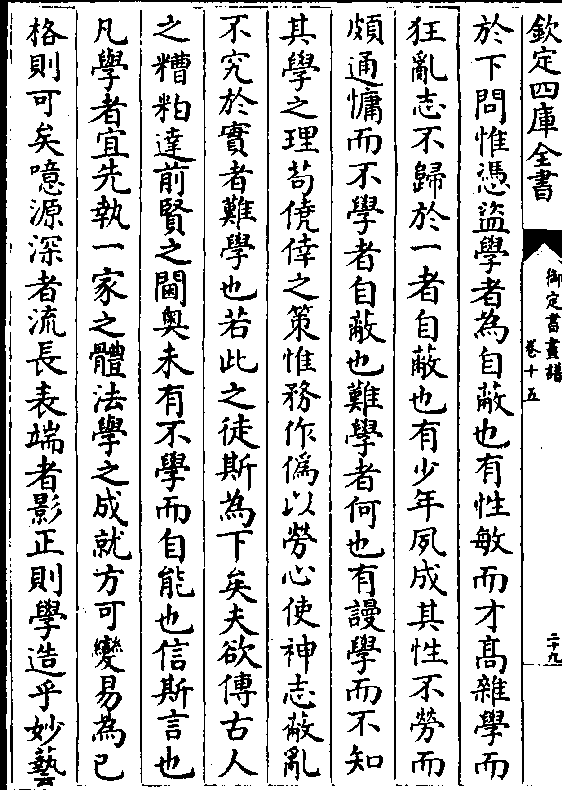 欽定四庫全書
御定書畫譜
卷十五
二十九
於下問惟憑盜學者為自蔽也有性敏而才高雜學而
狂亂志不歸於一者自蔽也有少年夙成其性不勞而
頗通慵而不學者自蔽也難學者何也有謾學而不知
其學之理苟僥倖之策惟務作偽以勞心使神志蔽亂
不究於實者難學也若此之徒斯為下矣夫欲傳古人
之糟粕達前賢之閫奥未有不學而自能也信斯言也
凡學者宜先執一家之體法學之成就方可變易為已
格則可矣噫源深者流長表端者影正則學造乎妙藝